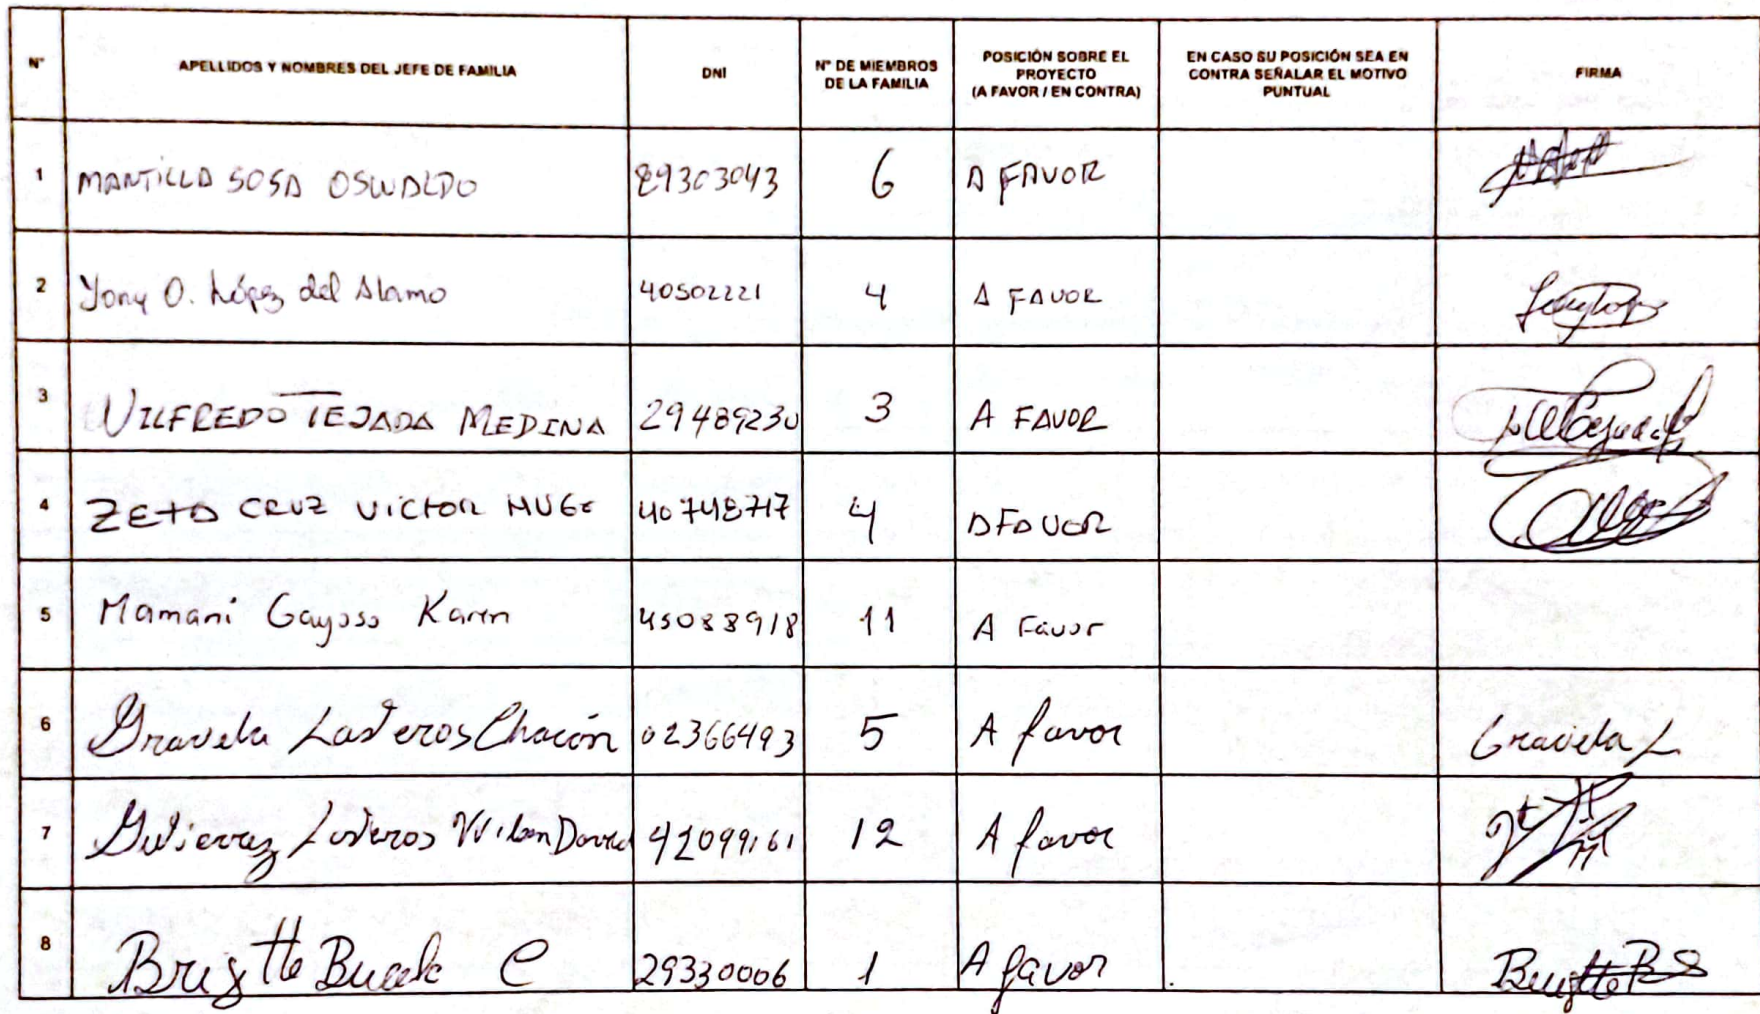 N° APELLIDOS Y NOMBRES DEL JEFE DE FAMILIA DNI N° DE MIEMBROS DE LA FAMILIA POSICIÓN SOBRE EL PROYECTO (A FAVOR / EN CONTRA) EN CASO SU POSICIÓN SEA EN CONTRA SEÑALAR EL MOTIVO PUNTUAL FIRMA
1 MANTILLA SOSA OSWALDO 29303043 6 A FAVOR
2 Yony O. López del Alamo 40502221 4 A FAVOR
3 WILFREDO TEJADA MEDINA 29489230 3 A FAVOR
4 ZETA CRUZ VICTOR HUGO 40748717 4 A FAVOR
5 Mamani Gayoso Karen 45088918 11 A Favor
6 Graciela Lasteros Chacón 02366493 5 A favor Graciela L
7 Gutierrez Lasteros Wilson David 42099161 12 A favor
8 Brigitte C 29330006 1 A favor Brigitte